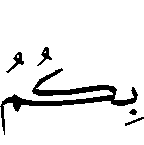 بِكُمُ